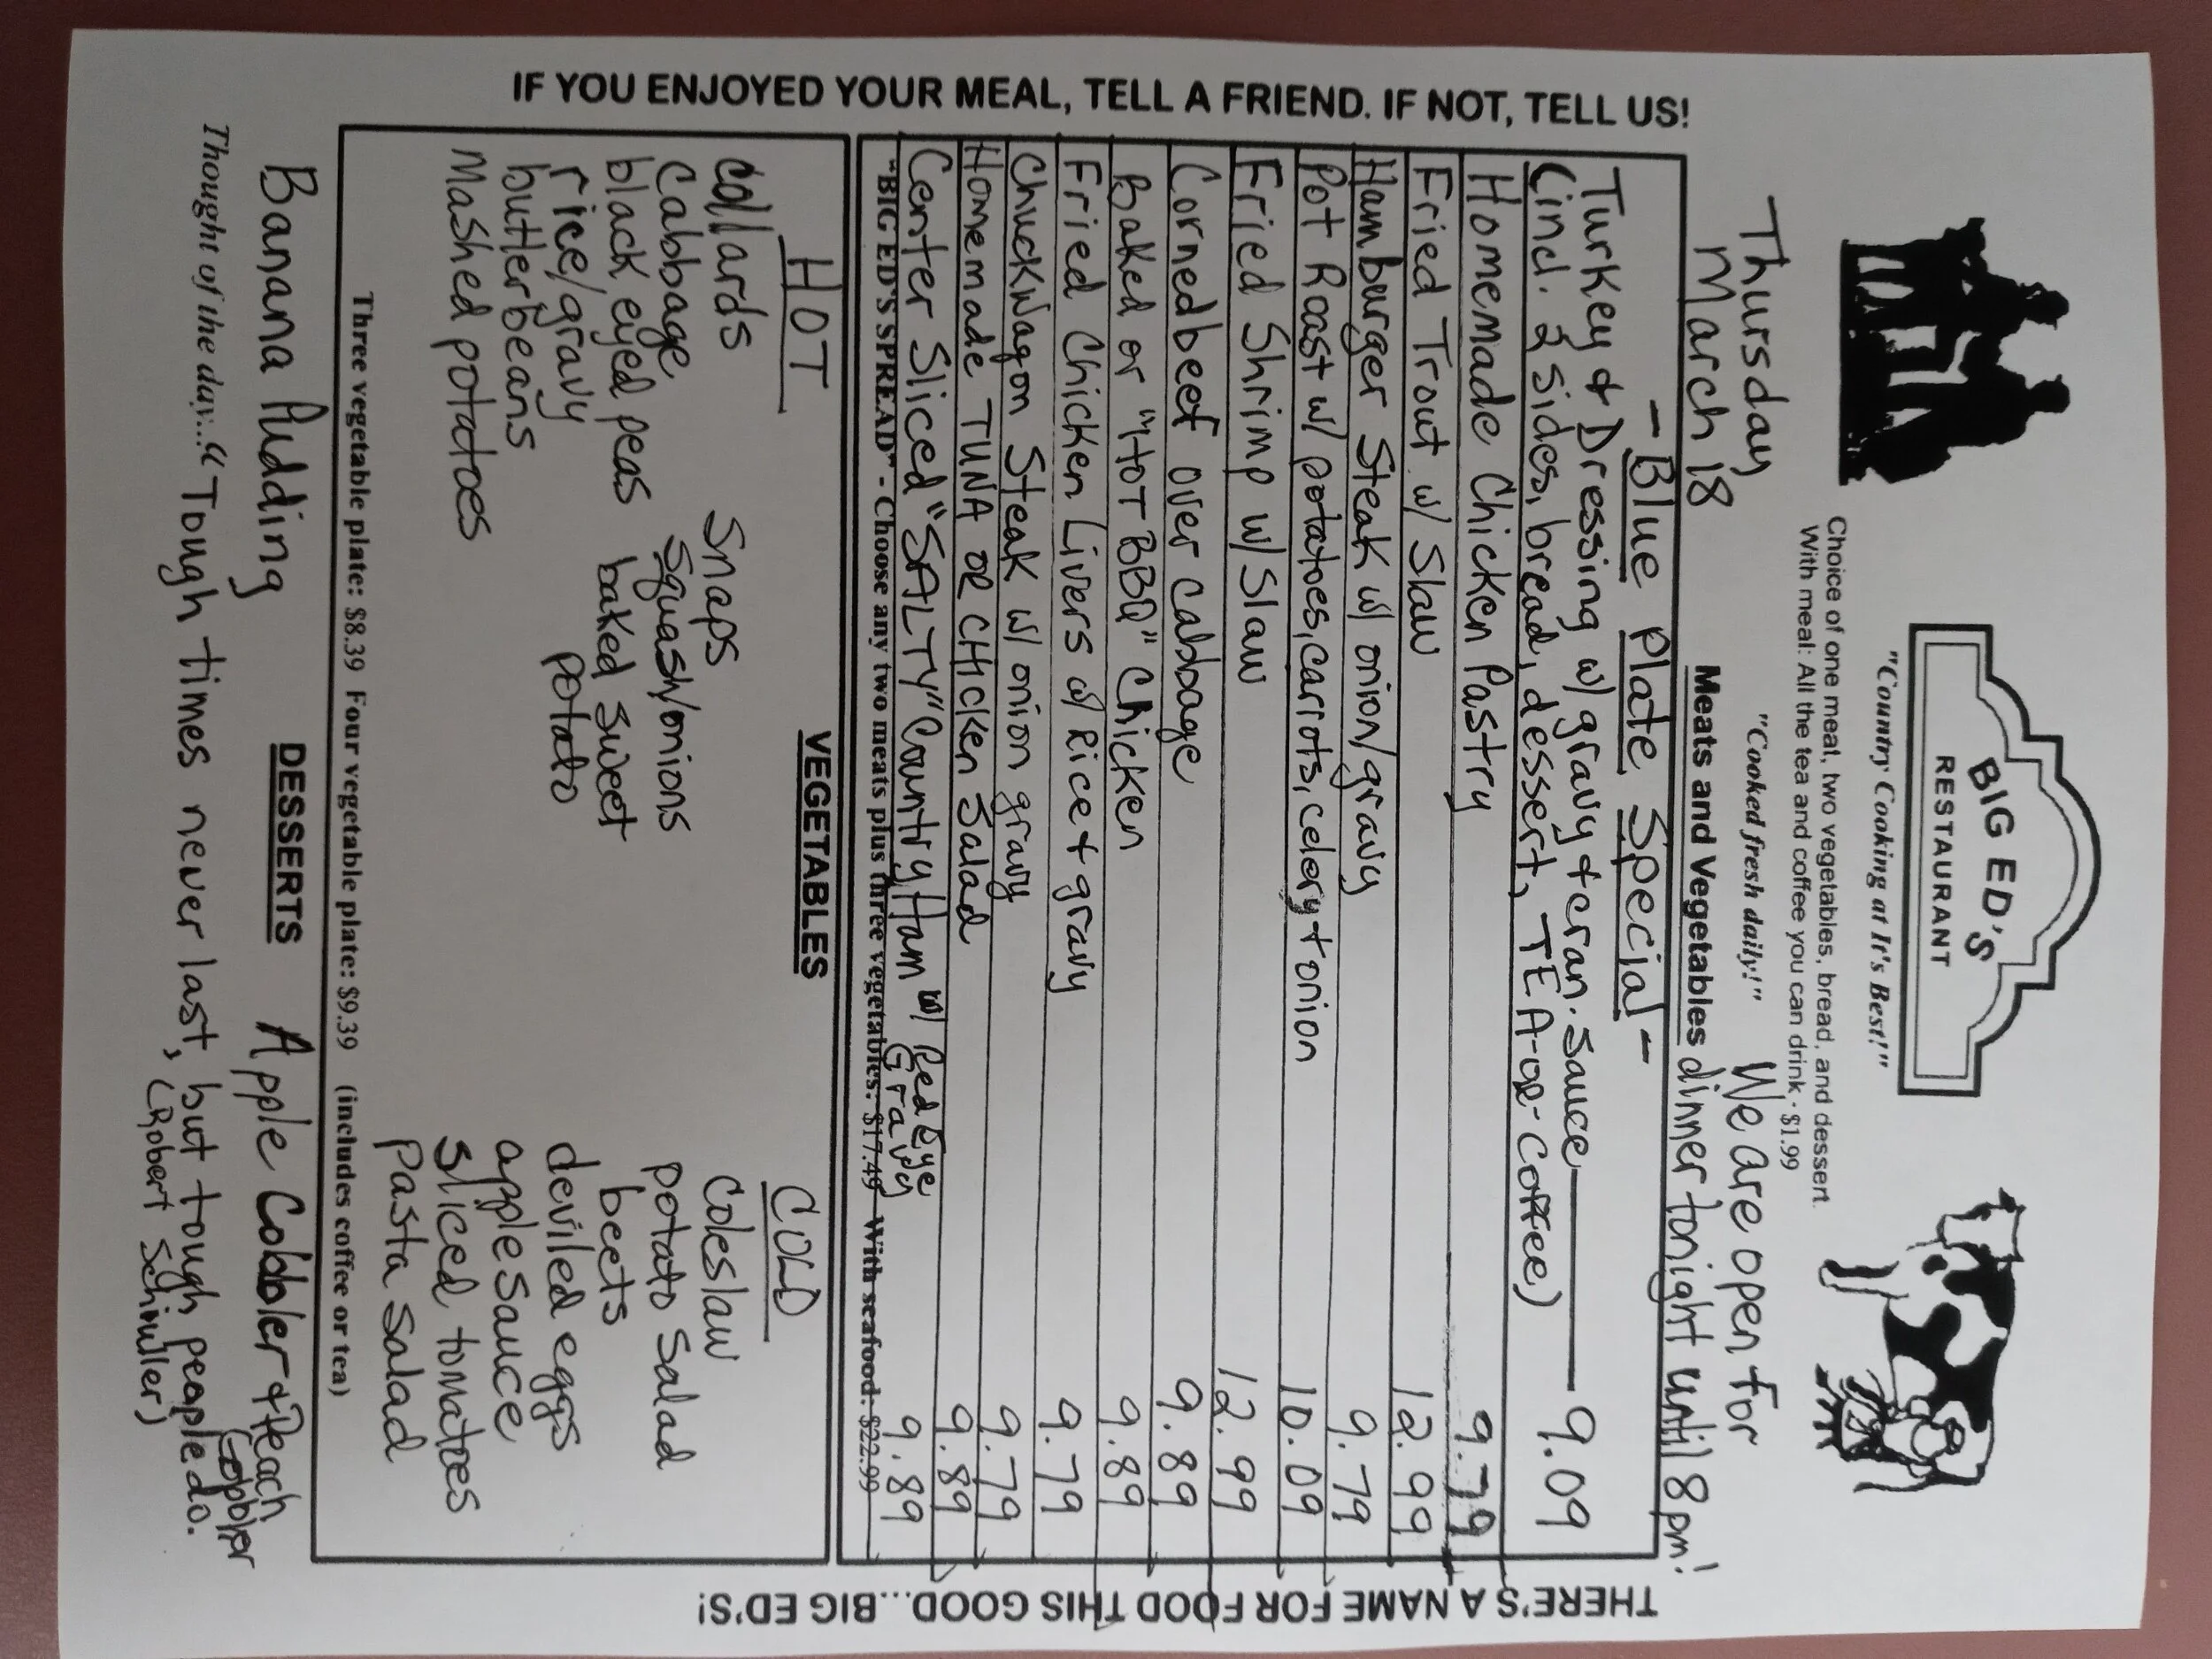 BIG ED'S
RESTAURANT
"Country Cooking at It's Best!"
Choice of one meal, two vegetables, bread, and dessert.
With meal: All the tea and coffee you can drink · $1.99
Thursday
March 18
"Cooked fresh daily!"
We are open for
Meats and Vegetables dinner tonight until 8pm!
- Blue Plate Special -
Turkey & Dressing w/ gravy + cran. sauce — 9.09
(incl. 2 sides, bread, dessert, TEA-OR-COFFEE)
Homemade Chicken Pastry 9.79
Fried Trout w/ Slaw 12.99
Hamburger Steak w/ onion/gravy 9.79
Pot Roast w/ potatoes, carrots, celery + onion 10.09
Fried Shrimp w/ Slaw 12.99
Corned beef over cabbage 9.89
Baked or "HOT BBQ" Chicken 9.89
Fried Chicken Livers w/ Rice + gravy 9.79
Chuckwagon Steak w/ onion gravy 9.79
Homemade TUNA OR CHICKEN Salad 9.89
Center Sliced "SALTY" Country Ham w/ Red Eye Gravy 9.89
"BIG ED'S SPREAD" - Choose any two meats plus three vegetables: $17.49 With seafood: $22.99
VEGETABLES
HOT
Collards
Cabbage
black eyed peas
rice/gravy
butterbeans
Mashed potatoes
Snaps
Squash/onions
baked sweet
potato
COLD
Coleslaw
potato salad
beets
deviled eggs
applesauce
sliced tomatoes
Pasta Salad
Three vegetable plate: $8.39 Four vegetable plate: $9.39 (includes coffee or tea)
DESSERTS
Banana Pudding
Apple Cobbler & Peach
Cobbler
Thought of the day... "Tough times never last, but tough people do.
(Robert Schuller)
IF YOU ENJOYED YOUR MEAL, TELL A FRIEND. IF NOT, TELL US!
THERE'S A NAME FOR FOOD THIS GOOD...BIG ED'S!